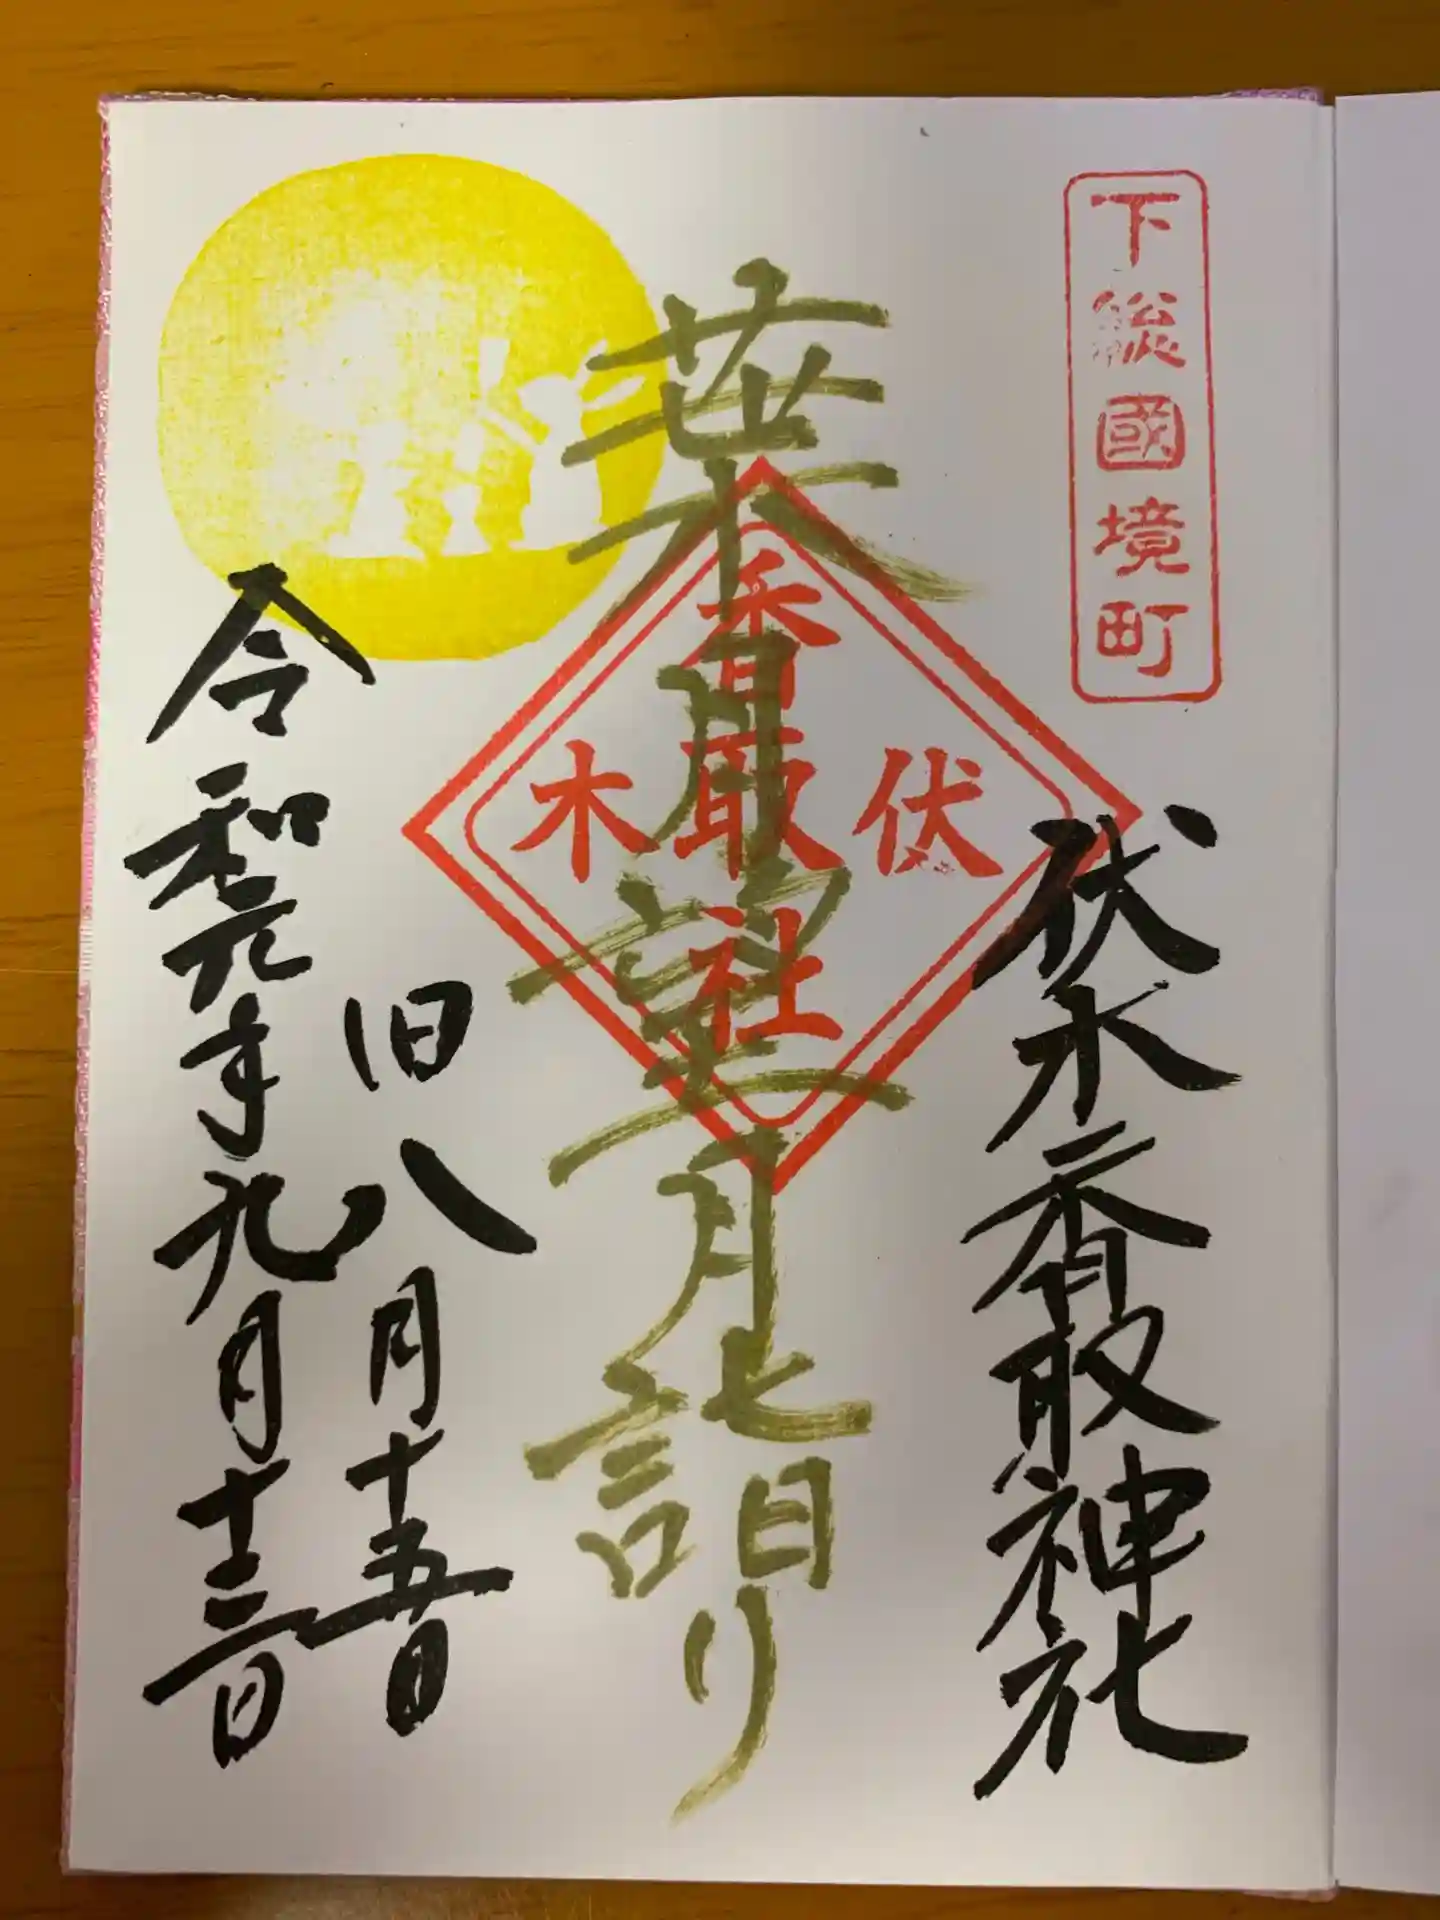 下総國境町
伏木香取神社
葉月望月詣り
香取社
伏
木
旧八月十五日
令和元年九月十三日